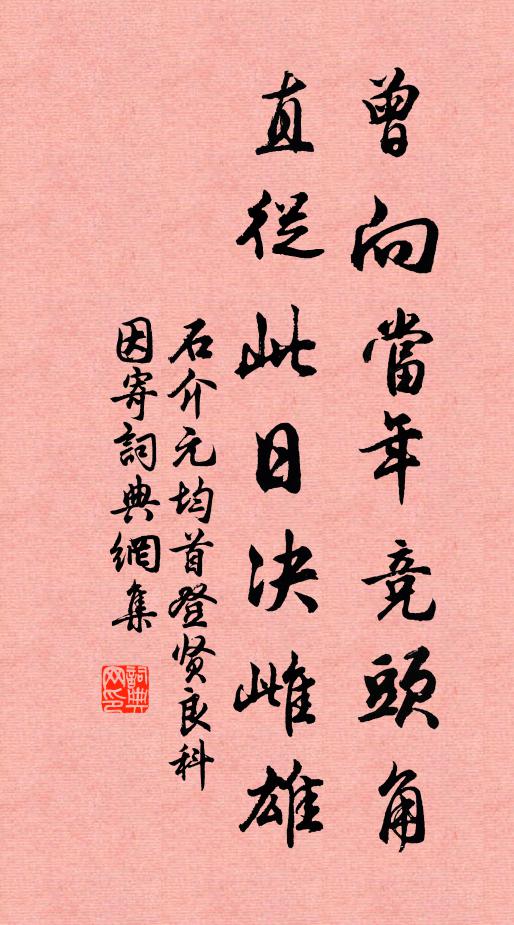 曾向當年竞頭角
直從此日决雌雄
石介元均首登贤良科
因寄詞典網集
詞典网印